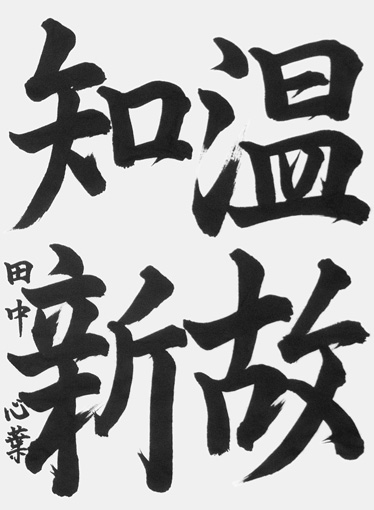 温故
知新
田中 心葉